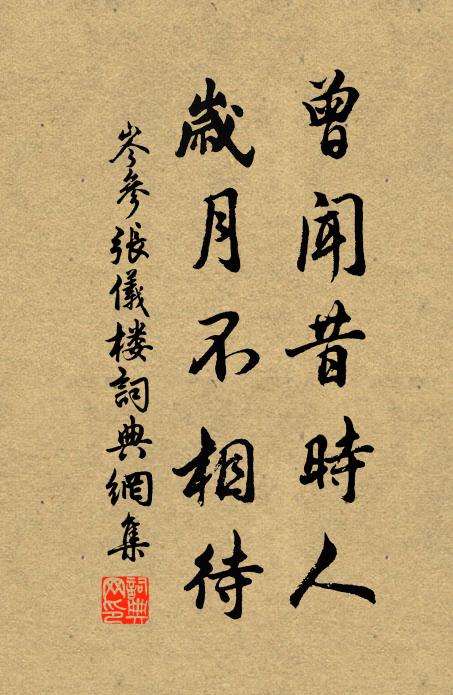 曾聞昔時人
歲月不相待
岑參張儀樓詞典網集
詞典網印